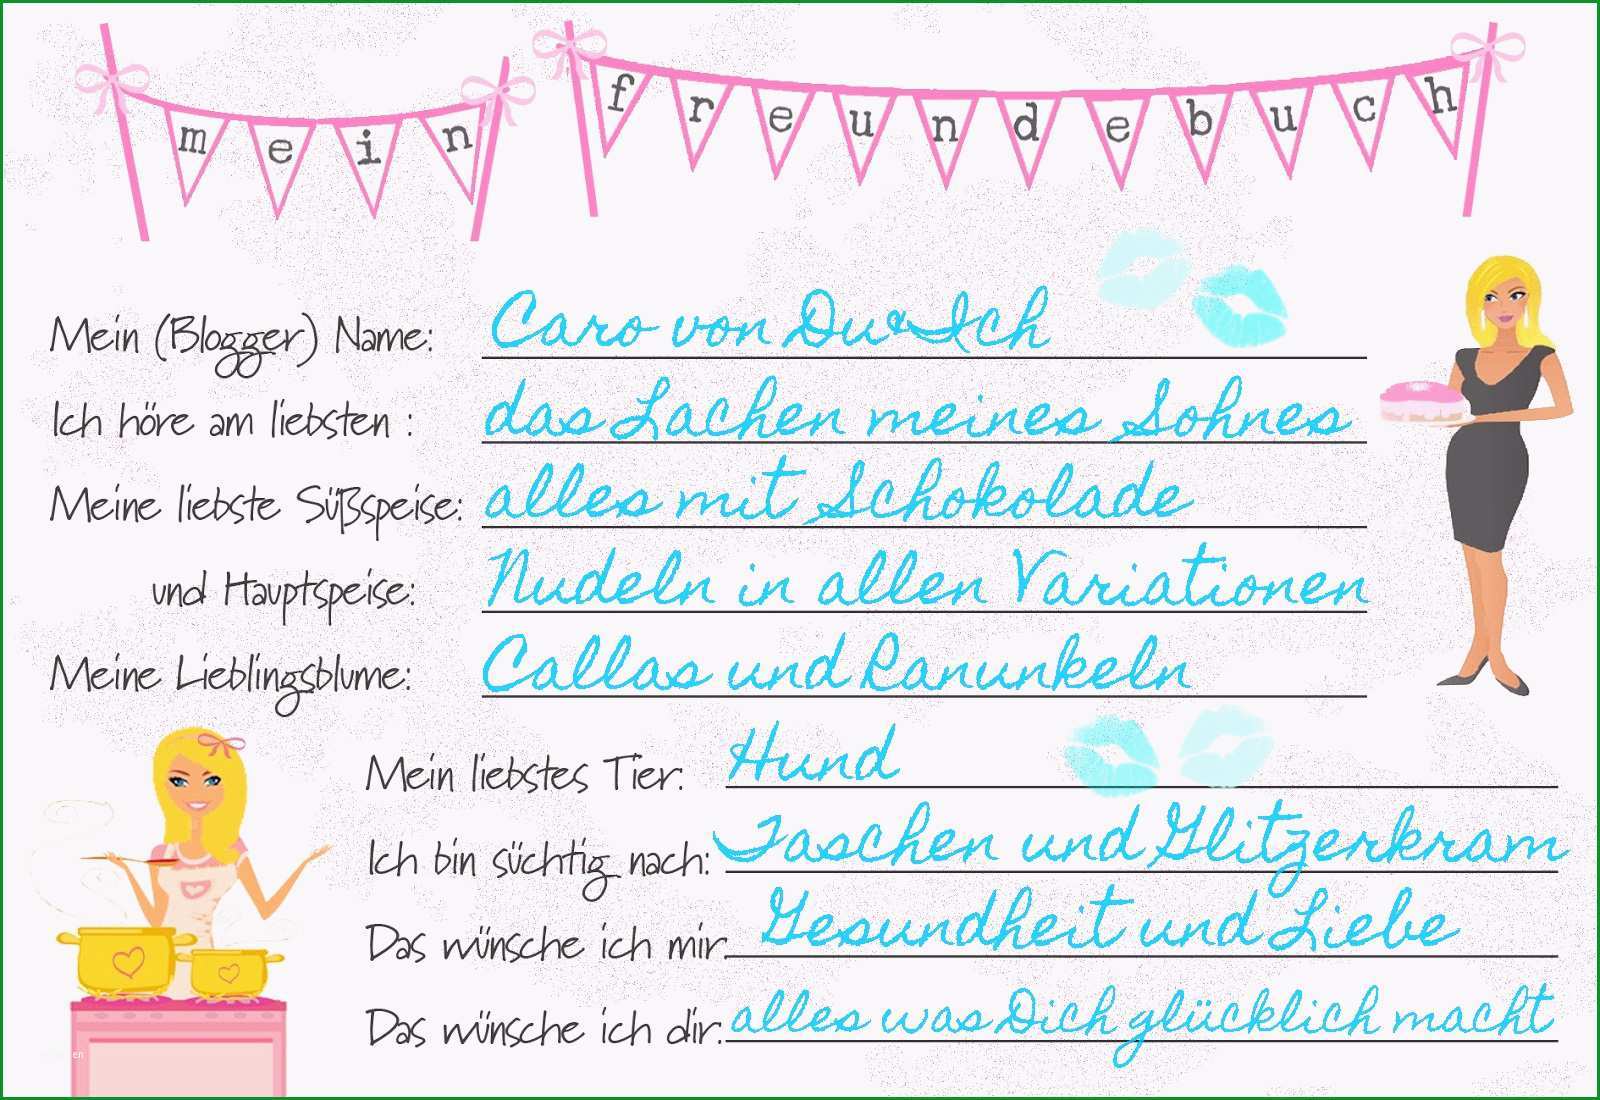 mein freundebuch
Mein (Blogger) Name: Caro von Du&Ich
Ich höre am liebsten : das Lachen meines Sohnes
Meine liebste Süßspeise: alles mit Schokolade
und Hauptspeise: Nudeln in allen Variationen
Meine Lieblingsblume: Callas und Ranunkeln
Mein liebstes Tier: Hund
Ich bin süchtig nach: Taschen und Glitzerkram
Das wünsche ich mir: Gesundheit und Liebe
Das wünsche ich dir: alles was Dich glücklich macht